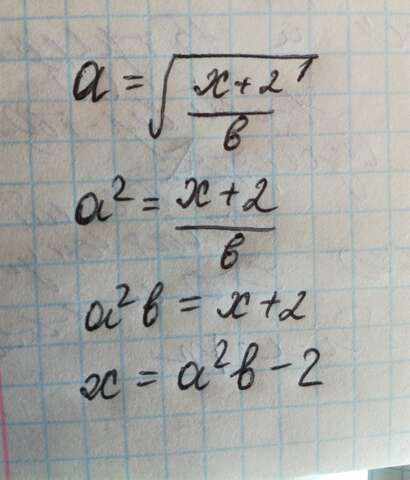 a = √((x+2)/b)
a² = (x+2)/b
a²b = x+2
x = a²b-2